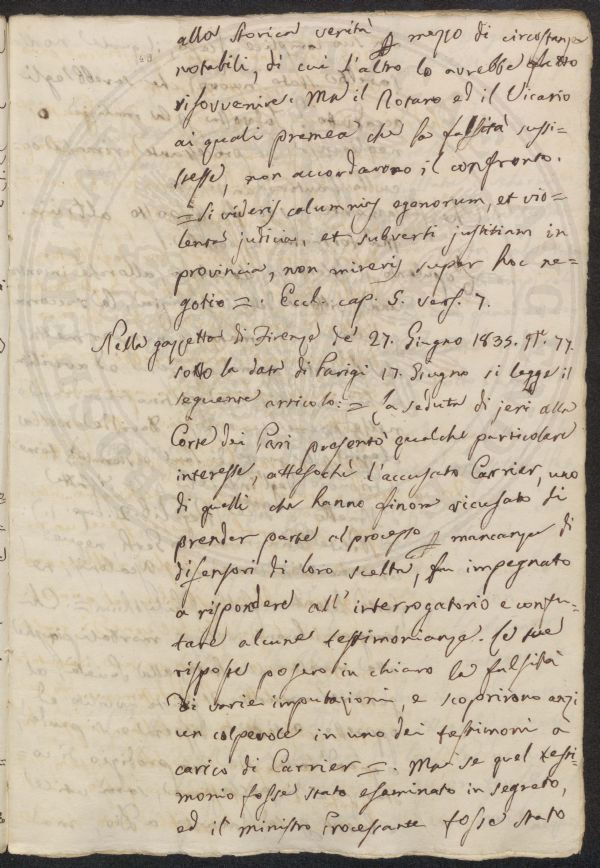 alla storica verità p mezzo di circostanze
notabili, di cui l'altro lo avrebbe fatto
risovvenire. Ma il Notaro ed il Vicario
ai quali premea che la falsità sussi=
stesse, non accordavono il confronto.
= Si videris calumnias egenorum, et vio=
lenta judicia, et subverti justitiam in
provincia, non mireris super hoc ne=
gotio =. Eccl. cap. 5. vers. 7.
Nella gazzetta di Firenze de' 27. Giugno 1835. N.° 77.
sotto la data di Parigi 17. Giugno si legge il
seguente articolo: = La seduta di jeri alla
Corte dei Pari presentò qualche particolare
interesse, attesochè l'accusato Carrier, uno
di quelli che hanno finora ricusato di
prender parte al processo p mancanza di
difensori di loro scelta, fu impegnato
a rispondere all'interrogatorio e confu=
tare alcune testimonianze. Le sue
risposte posero in chiaro la falsità
di varie imputazioni, e scoprirono anzi
un colpevole in uno dei testimoni a
carico di Carrier =. Ma se quel testi=
monio fosse stato esaminato in segreto,
ed il ministro Processante fosse stato